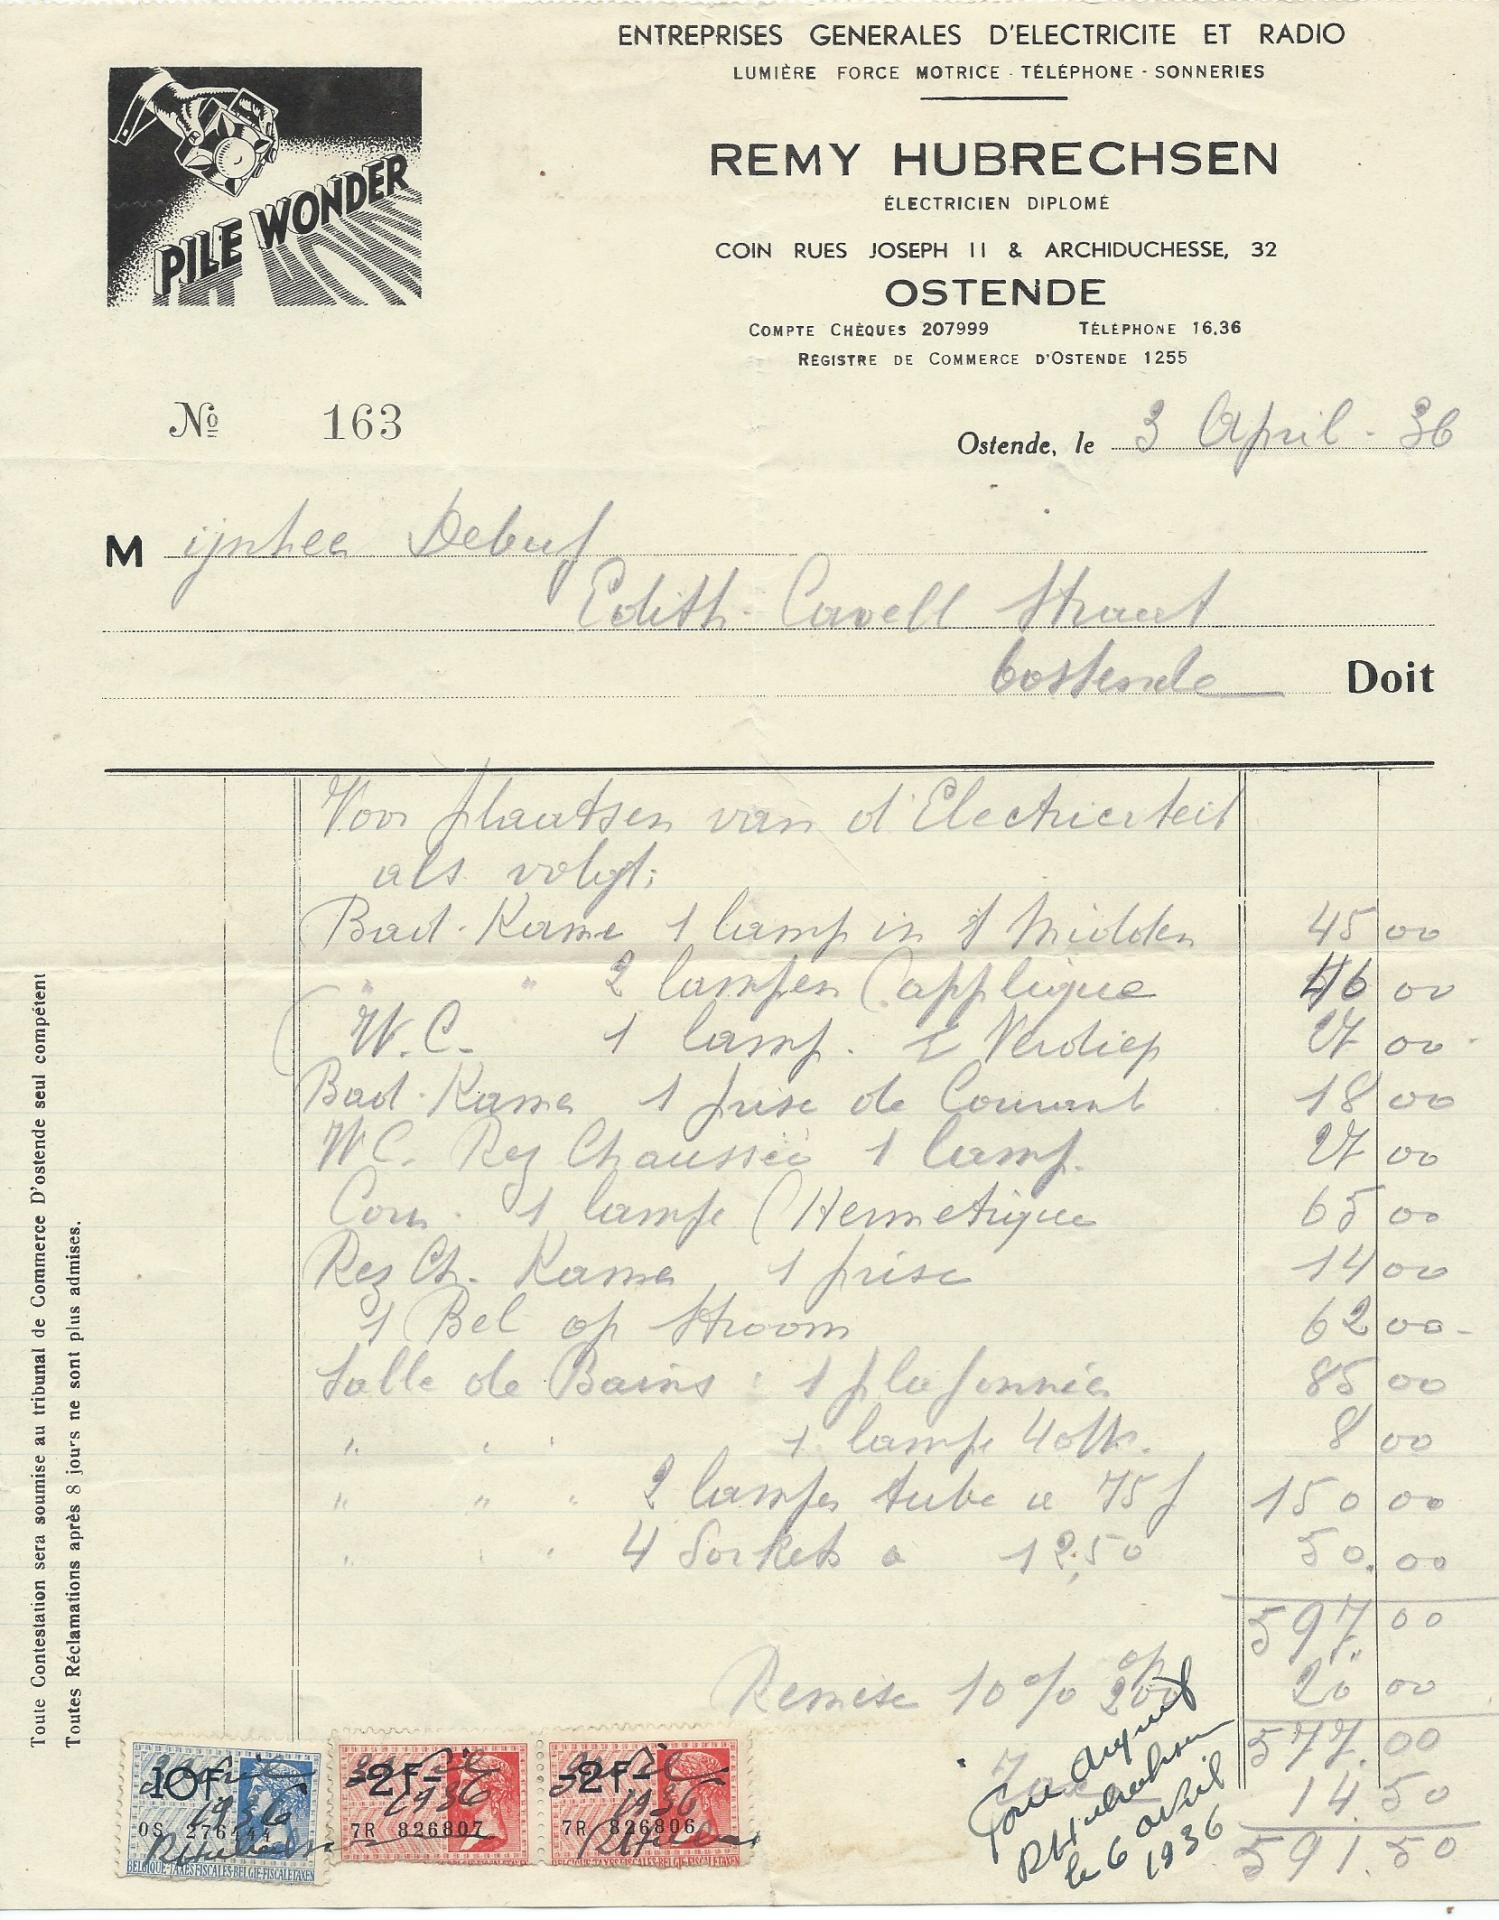 ENTREPRISES GENERALES D'ELECTRICITE ET RADIO
LUMIÈRE FORCE MOTRICE - TÉLÉPHONE - SONNERIES
PILE WONDER
REMY HUBRECHSEN
ÉLECTRICIEN DIPLOMÉ
COIN RUES JOSEPH II & ARCHIDUCHESSE, 32
OSTENDE
COMPTE CHÈQUES 207999 TÉLÉPHONE 16.36
RÉGISTRE DE COMMERCE D'OSTENDE 1255
No 163
Ostende, le 3 April - 36
M ijnheer Debuf
Edith - Cavell Straat
Oostende Doit
Voor plaatsen van d'Electricteit
als volgt:
Bad-Kame 1 lamp in 't Midden 45 00
" " 2 lampen (applique 46 00
W.C. 1 lamp. Verdiep 27 00
Bad-Kame 1 prise de Courant 18 00
WC. Rez Chaussée 1 lamp. 27 00
Cour. 1 lampe (Hermetique 65 00
Rez Ch. Kame, 1 prise 14 00
1 Bel op Stroom 62 00
Salle de Bains: 1 plafonnier 85 00
" " " 1 lampe 40 8 00
" " " 2 lampes tube a 75 f 150 00
" " " 4 Sockets a 12,50 50.00
597.00
Remise 10% op 200 20 00
577.00
Taxe 14.50
591.50
Pour Acquit
RHubrechsen
le 6 avril
1936
10F
1936
OS 276
BELGIQUE-TAXES FISCALES-BELGIE-FISCALE TAXEN
2F
1936
7R 826807
2F
1936
7R 826806
Toute Contestation sera soumise au tribunal de Commerce D'ostende seul compétent
Toutes Réclamations après 8 jours ne sont plus admises.